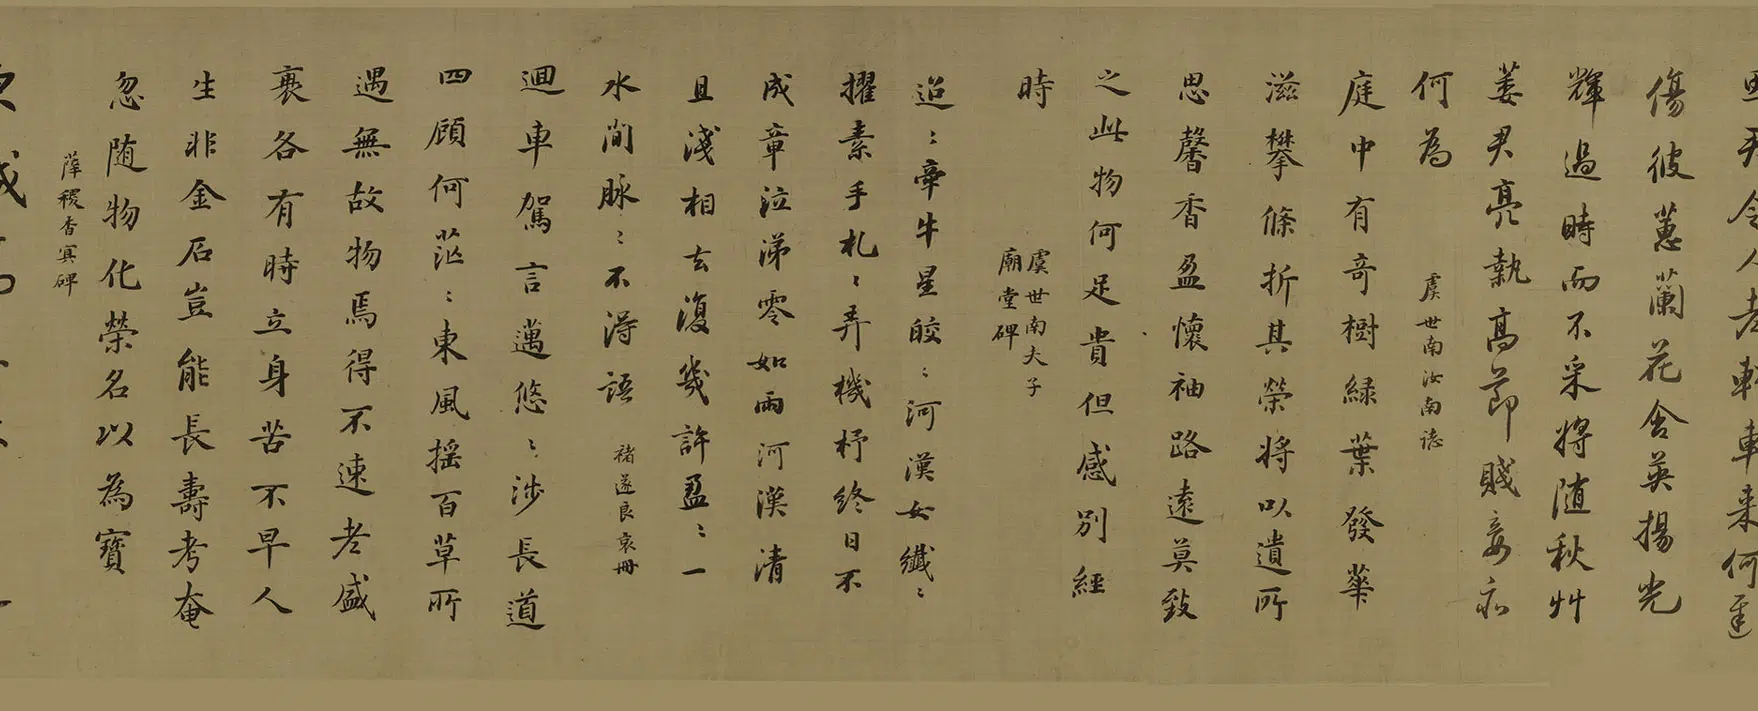 思君令人老軒車来何遲
傷彼蕙蘭花含英揚光
輝過時而不采將随秋艸
萎君亮執高節賤妾亦
何為
虞世南汝南誌
庭中有奇樹緑葉發華
滋攀條折其榮將以遺所
思馨香盈懷袖路遠莫致
之此物何足貴但感別經
時
虞世南夫子
廟堂碑
迢〻牽牛星皎〻河漢女纖〻
擢素手札〻弄機杼終日不
成章泣涕零如雨河漢清
且淺相去復幾許盈〻一
水間脉〻不得語
褚遂良哀冊
迴車駕言邁悠〻涉長道
四顧何茫〻東風揺百草所
遇無故物焉得不速老盛
衰各有時立身苦不早人
生非金石豈能長壽考奄
忽随物化榮名以為寶
薛稷杳冥碑